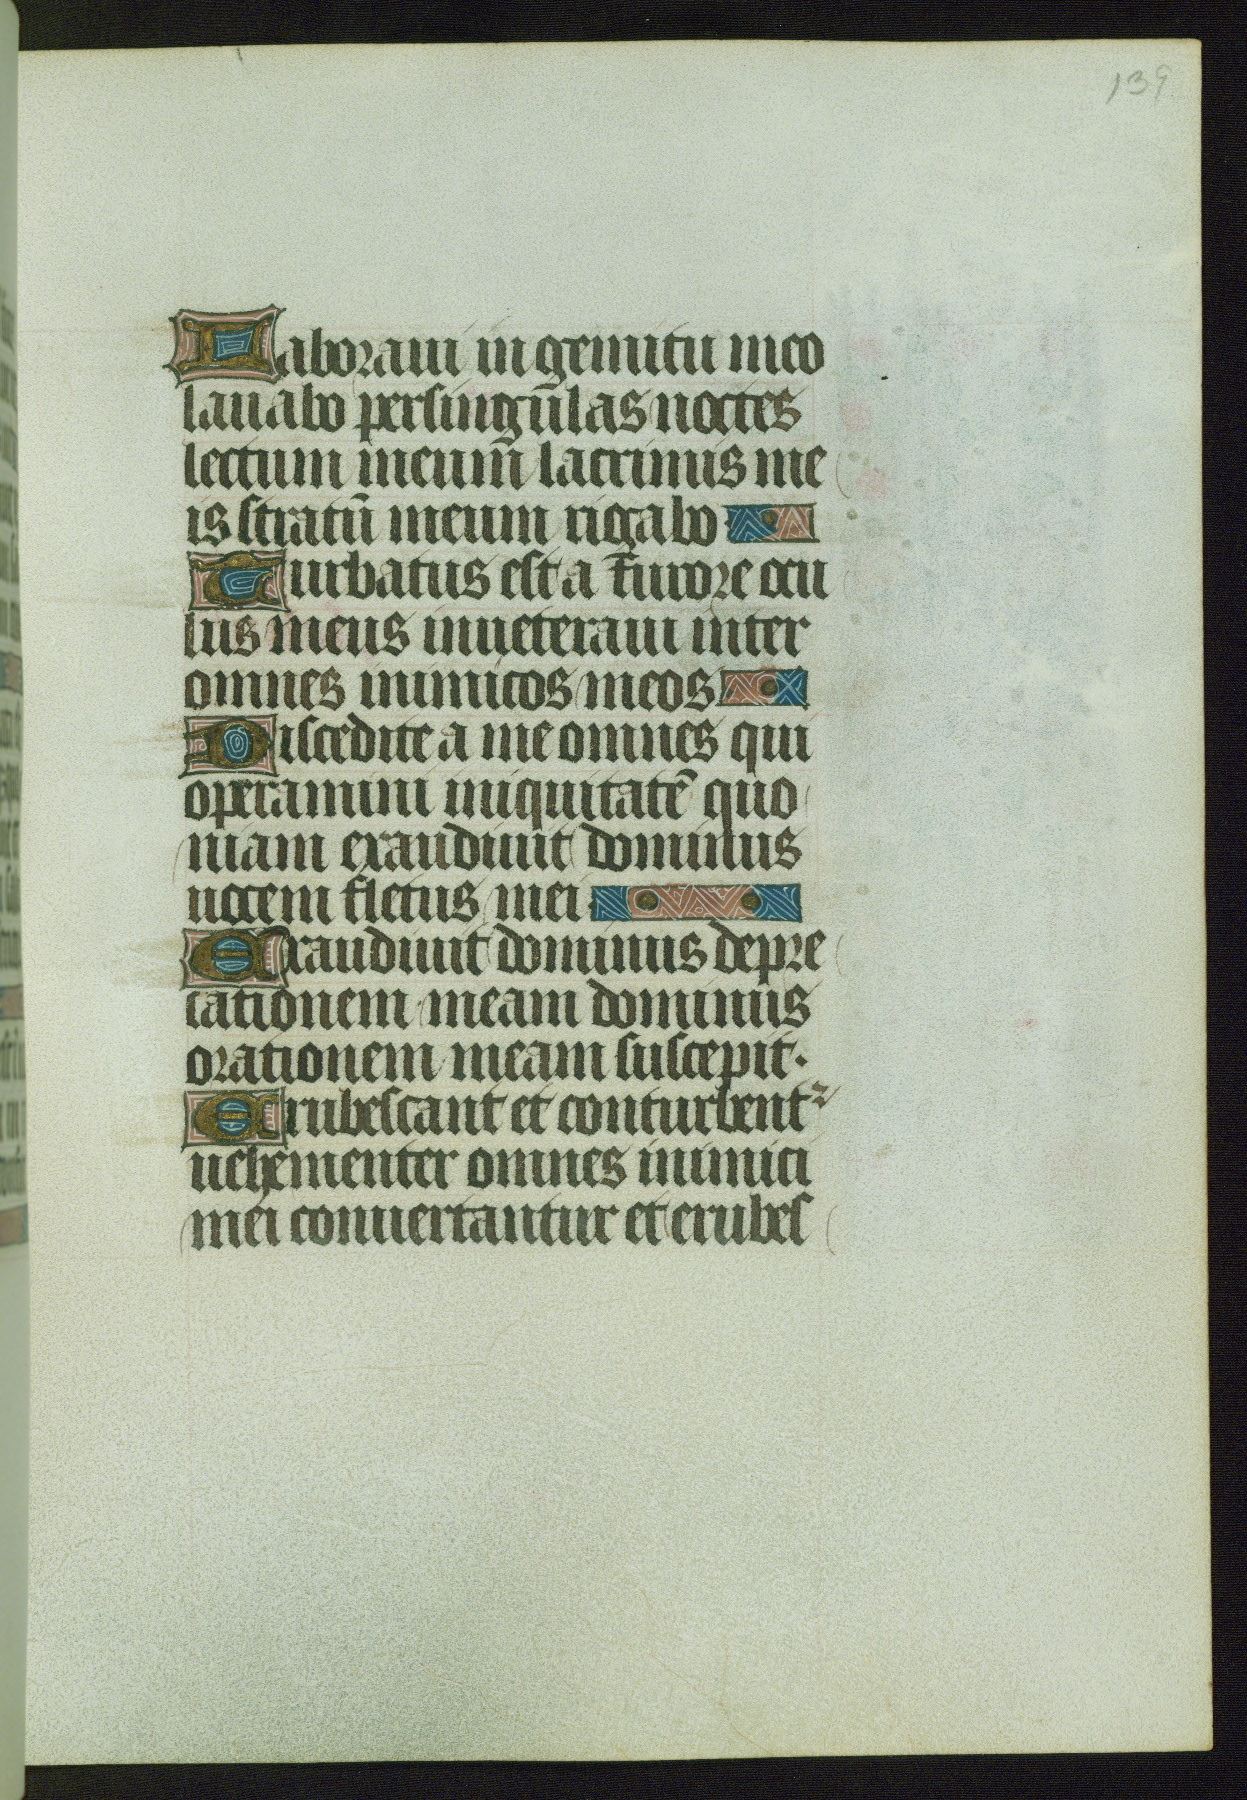 139
Laboraui in gemitu meo
lauabo per singūlas noctes
lectum meum̄ lacrimis me
is stratū meum rigabo
Turbatus est a furore ocu
lus meus inueteraui inter
omnes inimicos meos
Discedite a me omnes qui
operamini iniquitatē quo
niam exaudiuit dominus
uocem fletus mei
Exaudiuit dominus depre
cationem meam dominus
orationem meam suscepit.
Erubescant et conturbentᷣ
uehementer omnes inimici
mei conuertantur et erubes